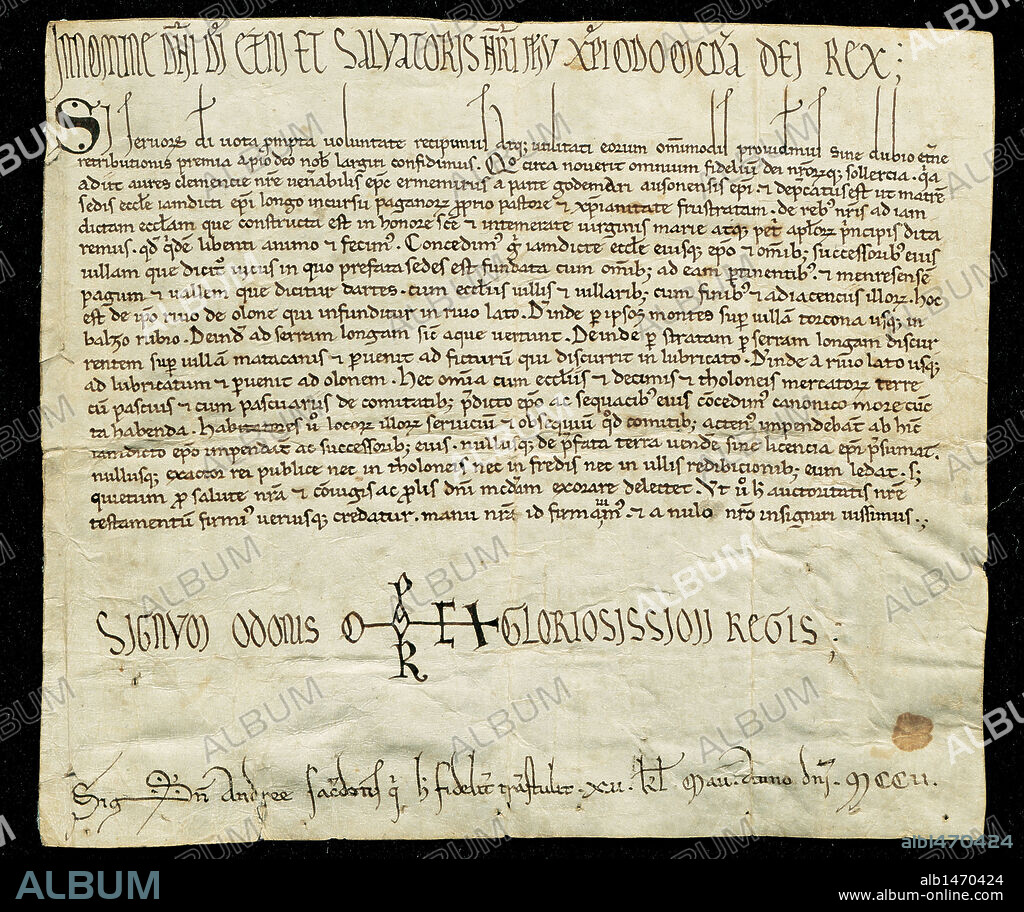 IN NOMINE DNI DI ETNI ET SALVATORIS NRI IHU XPI ODO MCDIA DEI REX;
Si servors di vota prompta voluntate recipimus atq; utilitati eorum omnimodis providemus sine dubio etne
retributionis premia a pio deo nob largiri confidimus. Qo circa noverit omnium fidelium dei nrorq; sollercia. qa
adiit aures clementie nre venabilis epc ermemirus a parte godemari ausonensis epi & depcatus est ut matrē
sedis eccle iamdicti epi longo incursu paganorz pprio pastore & xpianitate frustratam. de reb' nris ad iam
dictam ecclam que constructa est in honore sce & intemerate virginis marie atq; petr aplorz principis dita
remus. qd qdē libenti animo & fecim'. Concedim' g iamdicte eccle eiusq; epo & omib; successorib' eius
villam que dicit vicus in quo prefata sedes est fundata cum omib; ad eam ptinentib' & menresense
pagum & vallem que dicitur dartes. cum ecclus villis & villarib; cum finib' & adiacenciis illorz. hoc
est de ipo rivo de olone qui infunditur in rivo lato. Dinde p ipsos montes sup villā torcona usq; in
balzo rubio. Deinde ad serram longam sic aque vertunt. Deinde p stratam p serram longam discur
rentem sup villam matacanis & pvenit ad ficturum qui discurrit in lubricato. Dinde a rivo lato usq;
ad lubricatum & pvenit ad olonem. Hec omia cum eccliis & decimis & tholoneis mercatorz terre
cū pascuis & cum pascuariis de comitatib; pdicto epo ac sequacib' eius concedim' canonico more cunc
ta habenda. Habitatores u locorz illorz serviciū & obsequiū qd comitib; acten' inpendebat ab hic
iamdicto epo inpendat ac successorib; eius. nullusq; de pfata terra vende sine licencia epi psumat.
nullusq; exactor rei publice nec in tholoneis nec in fredis nec in ullis redibicionib; eum ledat. s;
quietum p salute nra & coniugis ac prolis dni mcdiam exorare delectet. Ut u h auctoritatis nre
testamentū firmi' veriusq; credatur. manu nra id firmavim' & anulo nro insigniri iussimus.;
SIGNUM ODONIS O R E + GLORIOSISSIMI REGIS;
Sig Andree sacdotis q h fidelit trastulit. xv. kl Mau. anno dni. MCCII.
ALBUM
ALBUM
alb1470424
alb1470424
www.album-online.com